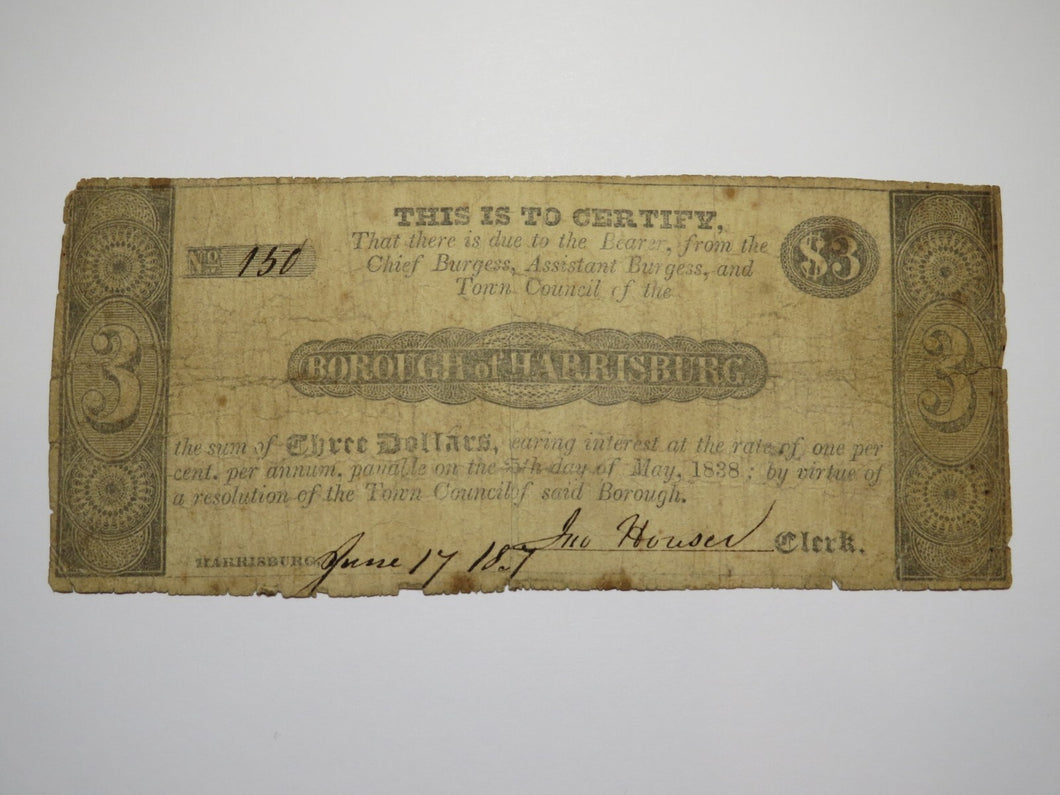 THIS IS TO CERTIFY,
No 150
That there is due to the Bearer, from the
$3
Chief Burgess, Assistant Burgess, and
Town Council of the
3
3
BOROUGH of HARRISBURG
the sum of Three Dollars, earing interest at the rate of one per
cent. per annum, payable on the 5th day of May, 1838; by virtue of
a resolution of the Town Council of said Borough.
Jno Houser Clerk.
HARRISBURG, June 17